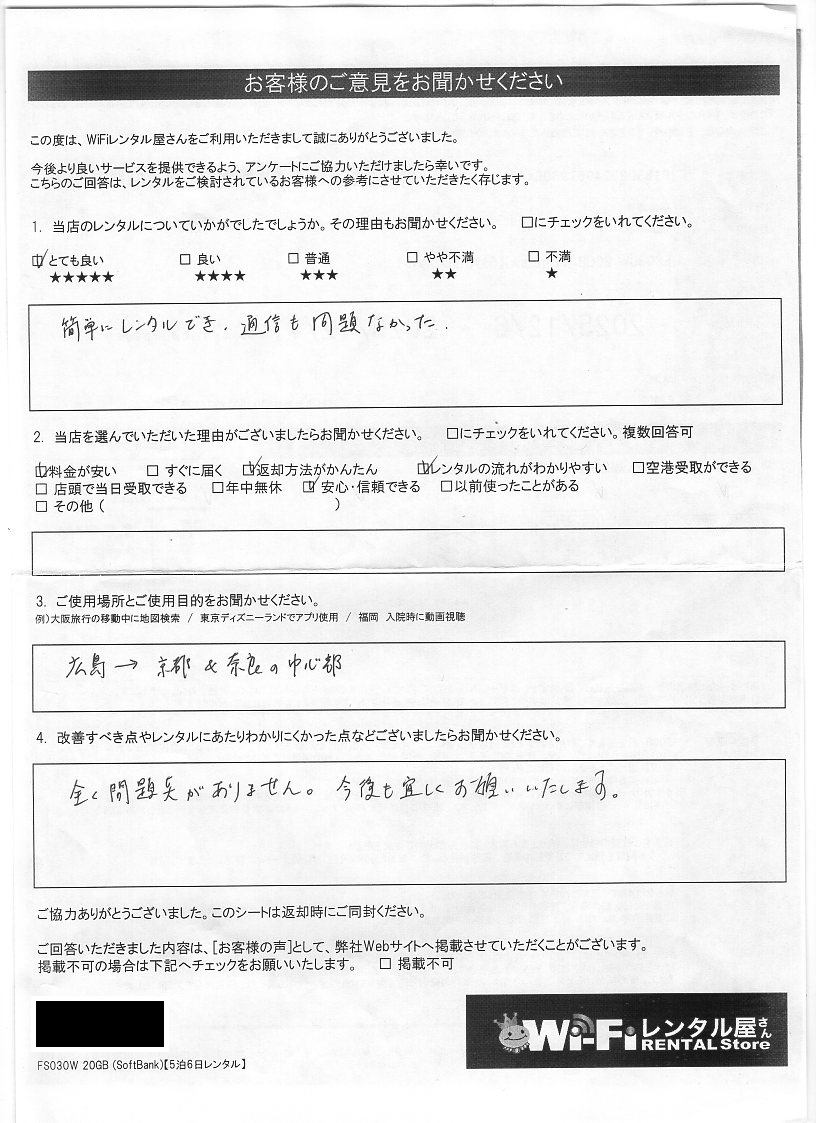 お客様のご意見をお聞かせください
この度は、WiFiレンタル屋さんをご利用いただきまして誠にありがとうございました。
今後より良いサービスを提供できるよう、アンケートにご協力いただけましたら幸いです。
こちらのご回答は、レンタルをご検討されているお客様への参考にさせていただきたく存じます。
1. 当店のレンタルについていかがでしたでしょうか。その理由もお聞かせください。 □にチェックをいれてください。
☑ とても良い □ 良い □ 普通 □ やや不満 □ 不満
★★★★★ ★★★★ ★★★ ★★ ★
簡単にレンタルでき、通信も問題なかった.
2. 当店を選んでいただいた理由がございましたらお聞かせください。 □にチェックをいれてください。複数回答可
☑料金が安い □ すぐに届く ☑返却方法がかんたん ☑レンタルの流れがわかりやすい □空港受取ができる
□ 店頭で当日受取できる □年中無休 ☑ 安心・信頼できる □以前使ったことがある
□ その他 ( )
3. ご使用場所とご使用目的をお聞かせください。
例)大阪旅行の移動中に地図検索 / 東京ディズニーランドでアプリ使用 / 福岡 入院時に動画視聴
広島 → 京都 & 奈良の中心部
4. 改善すべき点やレンタルにあたりわかりにくかった点などございましたらお聞かせください。
全く問題点がありません。今後も宜しくお願いいたします。
ご協力ありがとうございました。このシートは返却時にご同封ください。
ご回答いただきました内容は、[お客様の声]として、弊社Webサイトへ掲載させていただくことがございます。
掲載不可の場合は下記へチェックをお願いいたします。 □ 掲載不可
Wi-Fi レンタル屋さん
RENTAL Store
FS030W 20GB (SoftBank)【5泊6日レンタル】